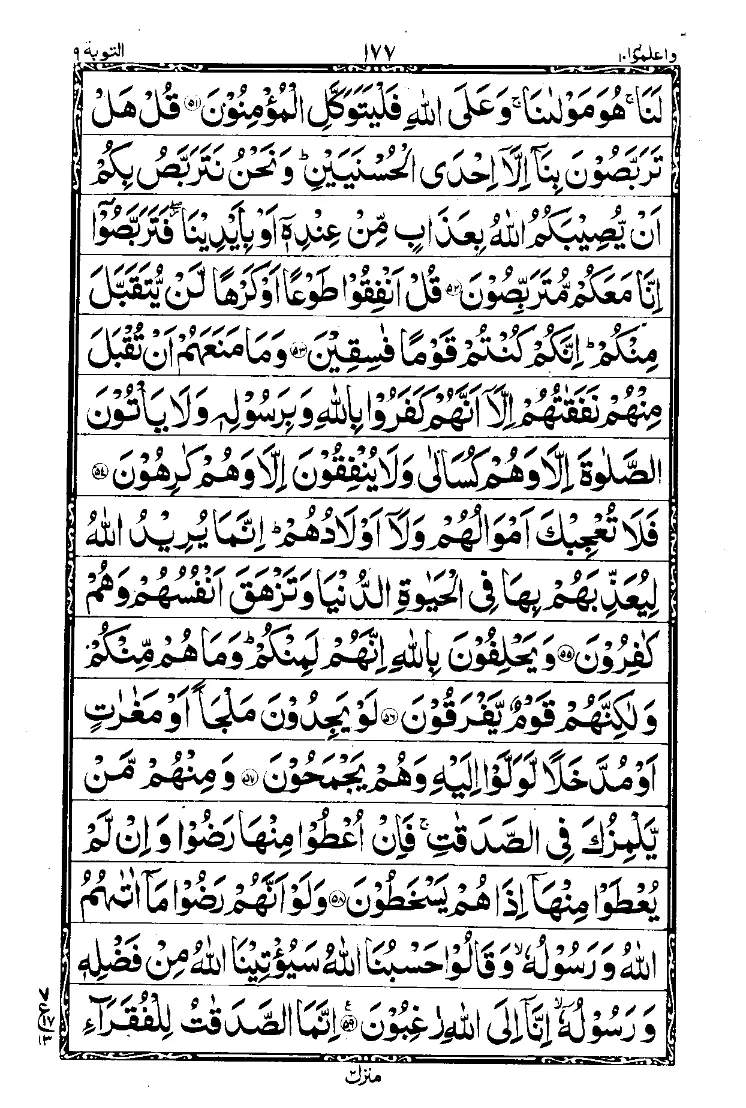 واعلموا ١٠ ١٧٧ التوبة ٩
لَنَا ۚ هُوَ مَوْلٰىنَا ۚ وَعَلَى اللّٰهِ فَلْيَتَوَكَّلِ الْمُؤْمِنُوْنَ ﴿٥١﴾ قُلْ هَلْ
تَرَبَّصُوْنَ بِنَاۤ اِلَّاۤ اِحْدَى الْحُسْنَيَيْنِ ؕ وَنَحْنُ نَتَرَبَّصُ بِكُمْ
اَنْ يُّصِيْبَكُمُ اللّٰهُ بِعَذَابٍ مِّنْ عِنْدِهٖۤ اَوْ بِاَيْدِيْنَا ۖ فَتَرَبَّصُوْۤا
اِنَّا مَعَكُمْ مُّتَرَبِّصُوْنَ ﴿٥٢﴾ قُلْ اَنْفِقُوْا طَوْعًا اَوْ كَرْهًا لَّنْ يُّتَقَبَّلَ
مِنْكُمْ ؕ اِنَّكُمْ كُنْتُمْ قَوْمًا فٰسِقِيْنَ ﴿٥٣﴾ وَمَا مَنَعَهُمْ اَنْ تُقْبَلَ
مِنْهُمْ نَفَقٰتُهُمْ اِلَّاۤ اَنَّهُمْ كَفَرُوْا بِاللّٰهِ وَبِرَسُوْلِهٖ وَلَا يَاْتُوْنَ
الصَّلٰوةَ اِلَّا وَهُمْ كُسَالٰى وَلَا يُنْفِقُوْنَ اِلَّا وَهُمْ كٰرِهُوْنَ ﴿٥٤﴾
فَلَا تُعْجِبْكَ اَمْوَالُهُمْ وَلَاۤ اَوْلَادُهُمْ ؕ اِنَّمَا يُرِيْدُ اللّٰهُ
لِيُعَذِّبَهُمْ بِهَا فِى الْحَيٰوةِ الدُّنْيَا وَتَزْهَقَ اَنْفُسُهُمْ وَهُمْ
كٰفِرُوْنَ ﴿٥٥﴾ وَيَحْلِفُوْنَ بِاللّٰهِ اِنَّهُمْ لَمِنْكُمْ ؕ وَمَا هُمْ مِّنْكُمْ
وَلٰكِنَّهُمْ قَوْمٌ يَّفْرَقُوْنَ ﴿٥٦﴾ لَوْ يَجِدُوْنَ مَلْجَاً اَوْ مَغٰرٰتٍ
اَوْ مُدَّخَلًا لَّوَلَّوْا اِلَيْهِ وَهُمْ يَجْمَحُوْنَ ﴿٥٧﴾ وَمِنْهُمْ مَّنْ
يَّلْمِزُكَ فِى الصَّدَقٰتِ ۚ فَاِنْ اُعْطُوْا مِنْهَا رَضُوْا وَاِنْ لَّمْ
يُعْطَوْا مِنْهَاۤ اِذَا هُمْ يَسْخَطُوْنَ ﴿٥٨﴾ وَلَوْ اَنَّهُمْ رَضُوْا مَاۤ اٰتٰىهُمُ
اللّٰهُ وَرَسُوْلُهٗ ۙ وَقَالُوْا حَسْبُنَا اللّٰهُ سَيُؤْتِيْنَا اللّٰهُ مِنْ فَضْلِهٖ
وَرَسُوْلُهٗۤ ۙ اِنَّاۤ اِلَى اللّٰهِ رٰغِبُوْنَ ﴿٥٩﴾ اِنَّمَا الصَّدَقٰتُ لِلْفُقَرَآءِ
منزل ٢